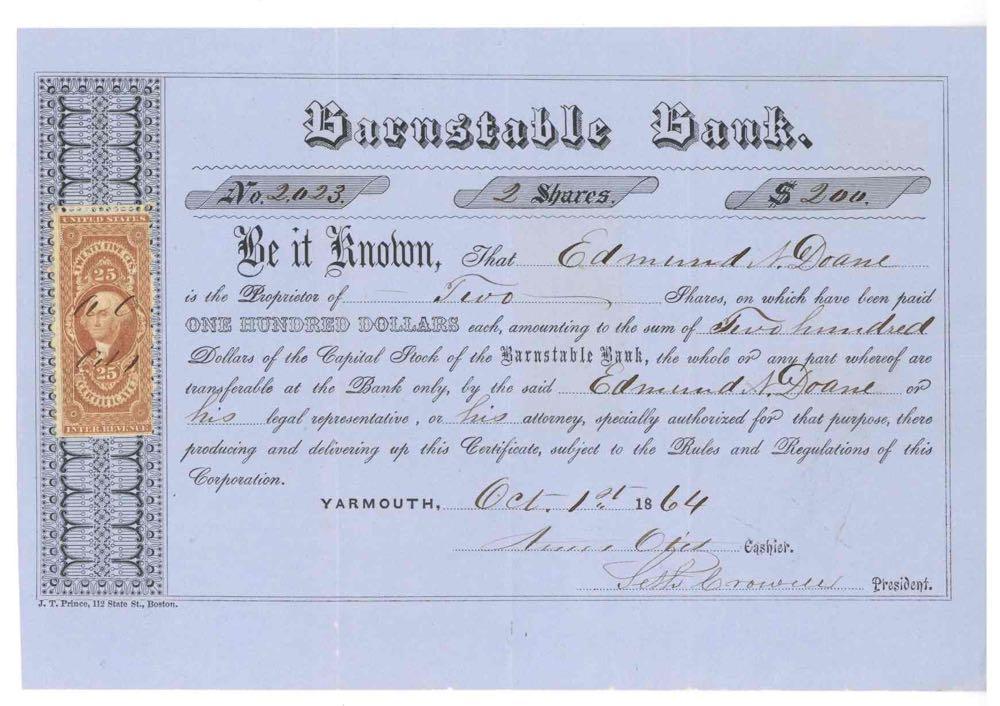 Barnstable Bank.
No. 2,023. 2 Shares. $ 200.
Be it Known, That Edmund N. Doane
is the Proprietor of Two Shares, on which have been paid
ONE HUNDRED DOLLARS each, amounting to the sum of Two hundred
Dollars of the Capital Stock of the Barnstable Bank, the whole or any part whereof are
transferable at the Bank only, by the said Edmund N. Doane or
his legal representative, or his attorney, specially authorized for that purpose, there
producing and delivering up this Certificate, subject to the Rules and Regulations of this
Corporation.
YARMOUTH, Oct. 1st. 1864
Cashier.
Seth Crowell President.
J. T. Prince, 112 State St., Boston.
UNITED STATES
TWENTY FIVE CTS.
25
Oct 1
25
CERTIFICATE
INTER. REVENUE